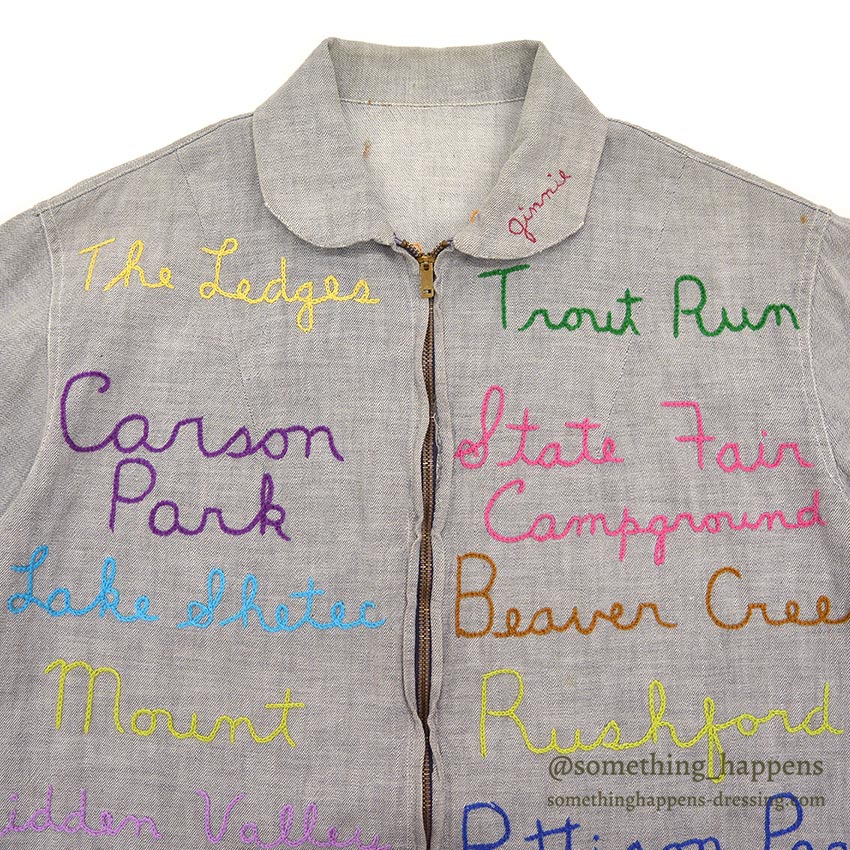 Jinnie
The Ledges
Trout Run
Carson
Park
State Fair
Campground
Lake Shetec
Beaver Cree
Mount
Rushford
idden Valley
@something_happens
somethinghappens-dressing.com